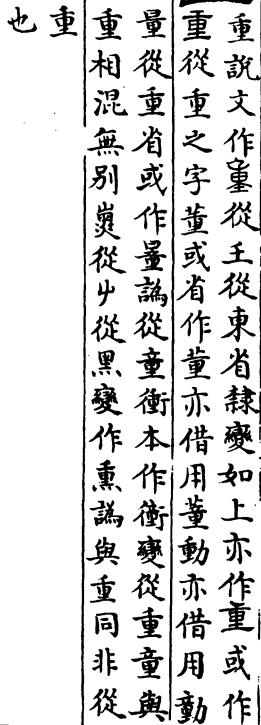 重說文作𡍴從壬從東省隸變如上亦作重或作
重從重之字董或省作董亦借用董動亦借用動
量從重省或作量譌從童衝本作衝變從重童與
重相混無別熏從屮從黑變作熏譌與重同非從
重
也